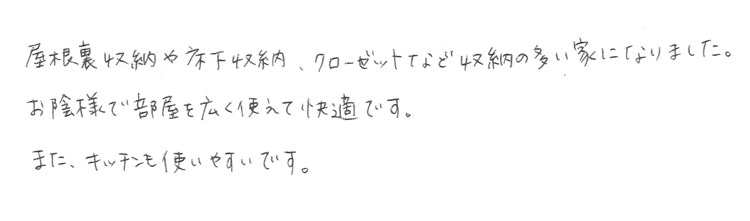 屋根裏収納や床下収納、クローゼットなど収納の多い家になりました。
お陰様で部屋を広く使えて快適です。
また、キッチンも使いやすいです。